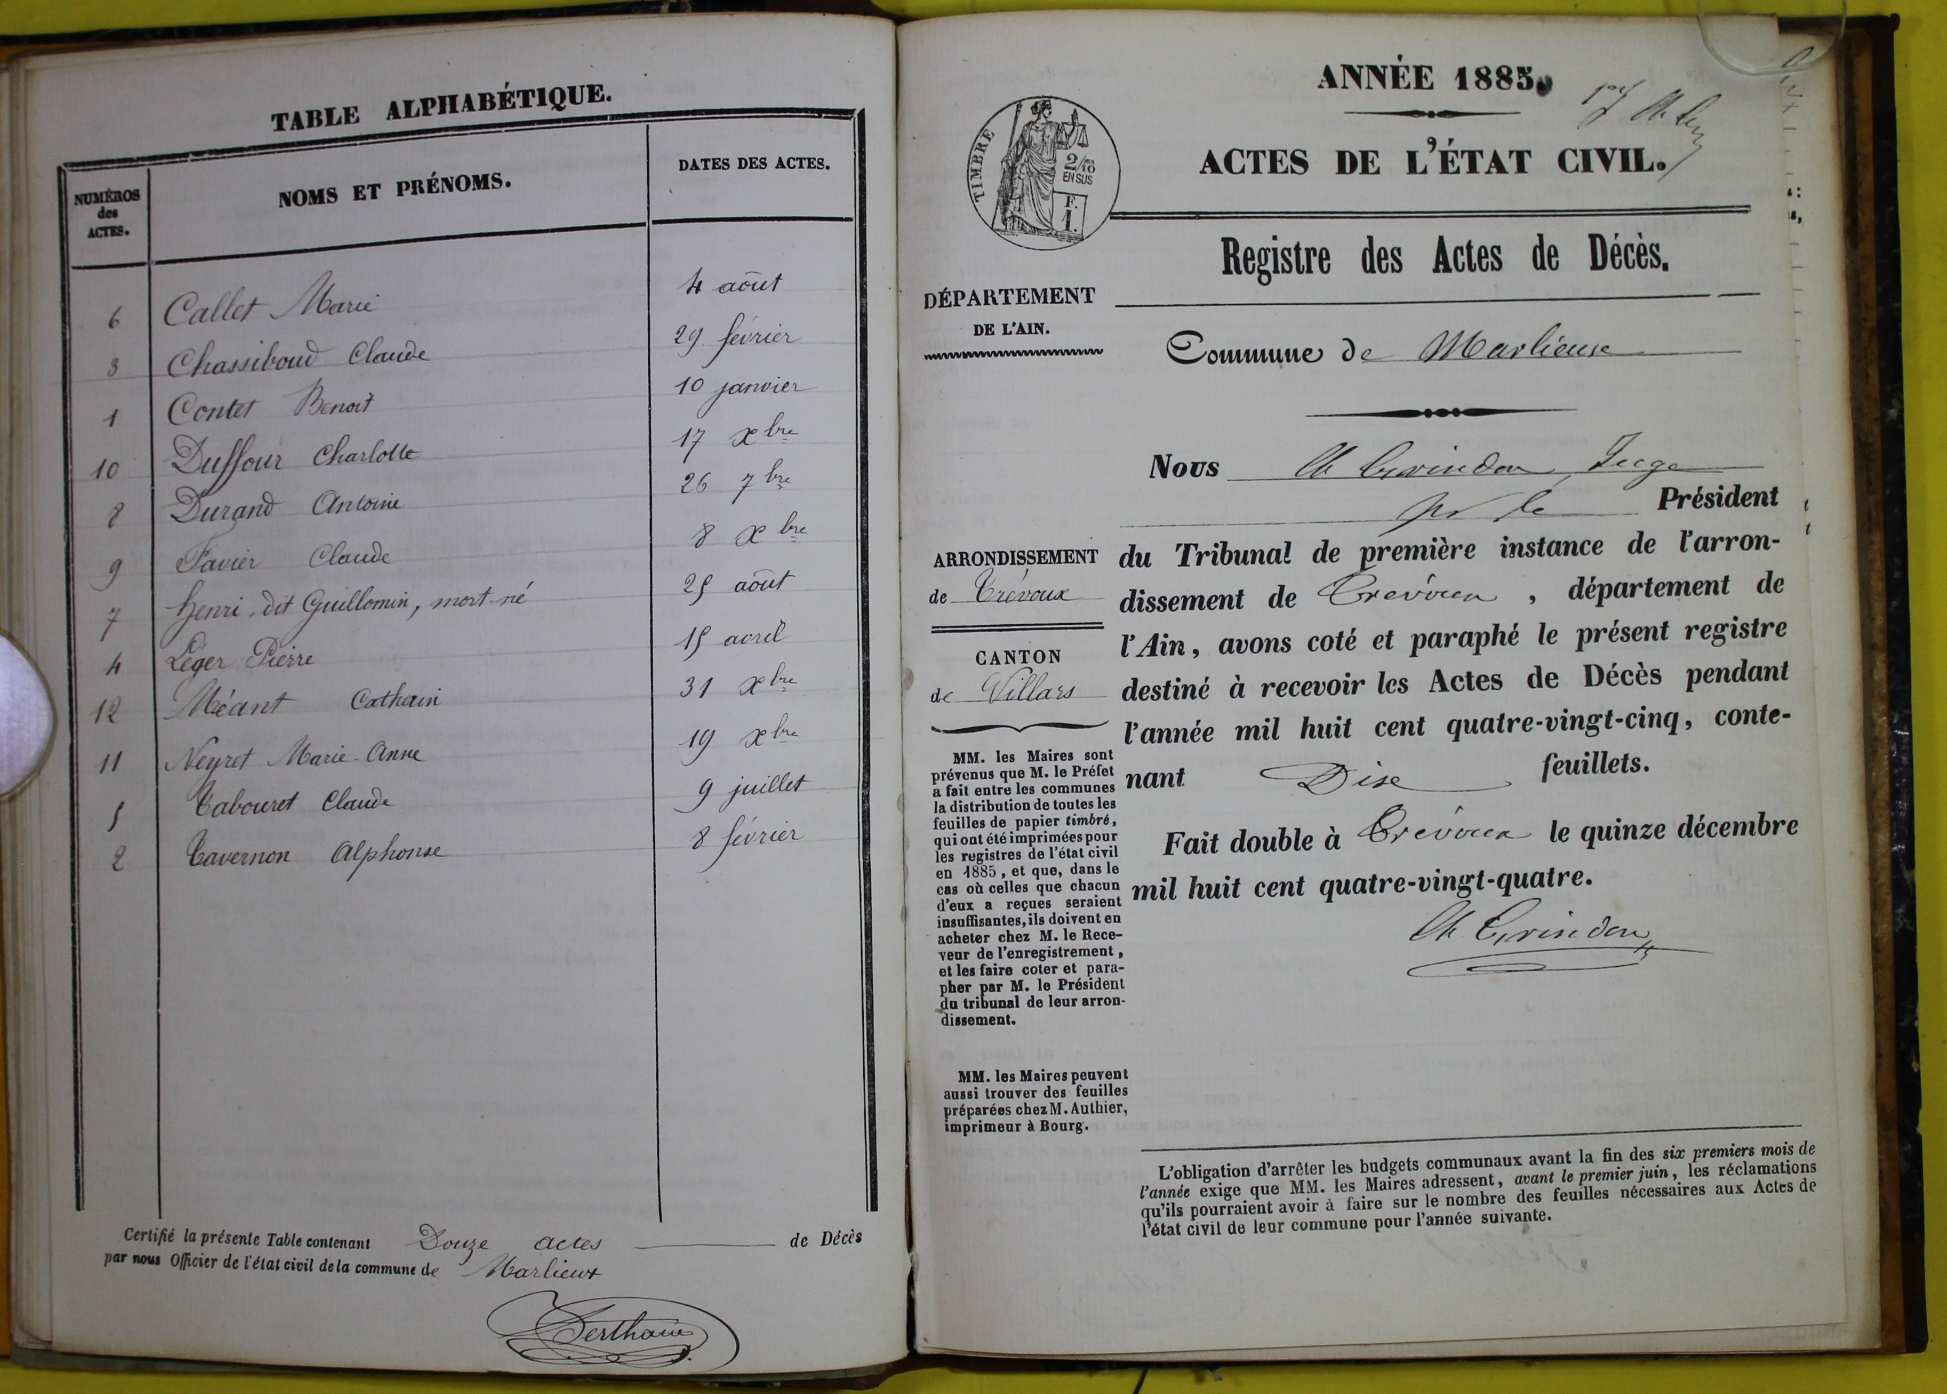 TABLE ALPHABÉTIQUE.
NUMÉROS des ACTES. NOMS ET PRÉNOMS. DATES DES ACTES.
6 Callet Marie 4 août
3 Chassiboud Claude 29 février
1 Contet Benoit 10 janvier
10 Duffour Charlotte 17 xbre
8 Durand Antoine 26 7bre
9 Favier Claude 8 xbre
7 Henri dit Guillomin, mort-né 25 août
4 Léger Pierre 15 avril
12 Méant Catherin 31 xbre
11 Neyret Marie-Anne 19 xbre
5 Tabouret Claude 9 juillet
2 Tavernon Alphonse 8 février
Certifié la présente Table contenant Douze actes de Décès
par nous Officier de l'état civil de la commune de Marlieux
ANNÉE 1885.
ACTES DE L'ÉTAT CIVIL.
TIMBRE
2/10
EN SUS
F.
1.
Registre des Actes de Décès.
DÉPARTEMENT
DE L'AIN.
Commune de Marlieux
Nous Ch Grindon Juge
pr le Président
ARRONDISSEMENT
de Trévoux
CANTON
de Villars
du Tribunal de première instance de l'arron-
dissement de Trévoux, département de
l'Ain, avons coté et paraphé le présent registre
destiné à recevoir les Actes de Décès pendant
l'année mil huit cent quatre-vingt-cinq, conte-
nant Dix feuillets.
Fait double à Trévoux le quinze décembre
mil huit cent quatre-vingt-quatre.
Ch Grindon
MM. les Maires sont
prévenus que M. le Préfet
a fait entre les communes
la distribution de toutes les
feuilles de papier timbré,
qui ont été imprimées pour
les registres de l'état civil
en 1885, et que, dans le
cas où celles que chacun
d'eux a reçues seraient
insuffisantes, ils doivent en
acheter chez M. le Rece-
veur de l'enregistrement,
et les faire coter et para-
pher par M. le Président
du tribunal de leur arron-
dissement.
MM. les Maires peuvent
aussi trouver des feuilles
préparées chez M. Authier,
imprimeur à Bourg.
L'obligation d'arrêter les budgets communaux avant la fin des six premiers mois de
l'année exige que MM. les Maires adressent, avant le premier juin, les réclamations
qu'ils pourraient avoir à faire sur le nombre des feuilles nécessaires aux Actes de
l'état civil de leur commune pour l'année suivante.